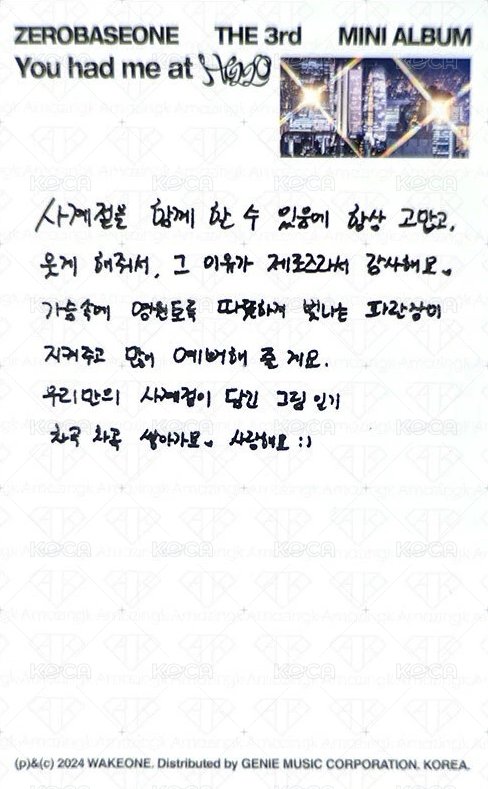 ZEROBASEONE THE 3rd MINI ALBUM
You had me at Hello
사계절을 함께 할 수 있음에 항상 고맙고,
웃게 해줘서, 그 이유가 제로즈라서 감사해요.
가슴속에 영원토록 따뜻하게 빛나는 파란장미
지켜주고 많이 예뻐해 줄 게요.
우리만의 사계절이 담긴 그림 일기
차곡 차곡 쌓아가요. 사랑해요 :)
(p)&(c) 2024 WAKEONE. Distributed by GENIE MUSIC CORPORATION. KOREA.
KOCA
Amazingk